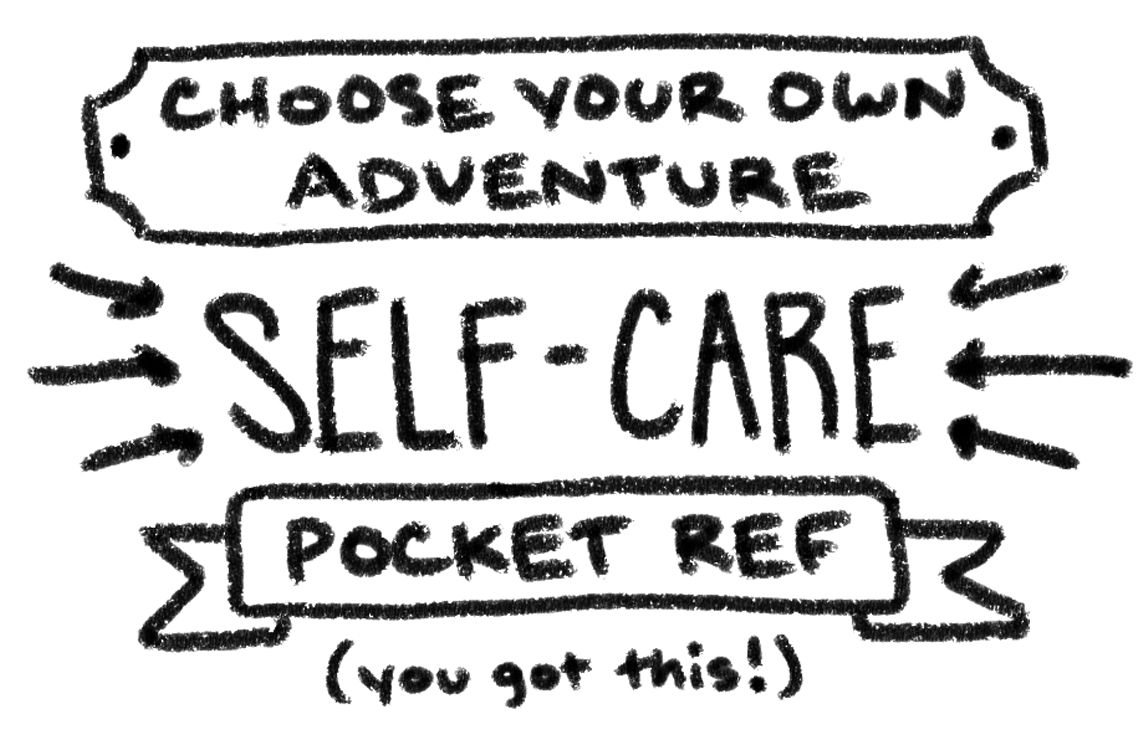 CHOOSE YOUR OWN
ADVENTURE
SELF-CARE
POCKET REF
(you got this!)